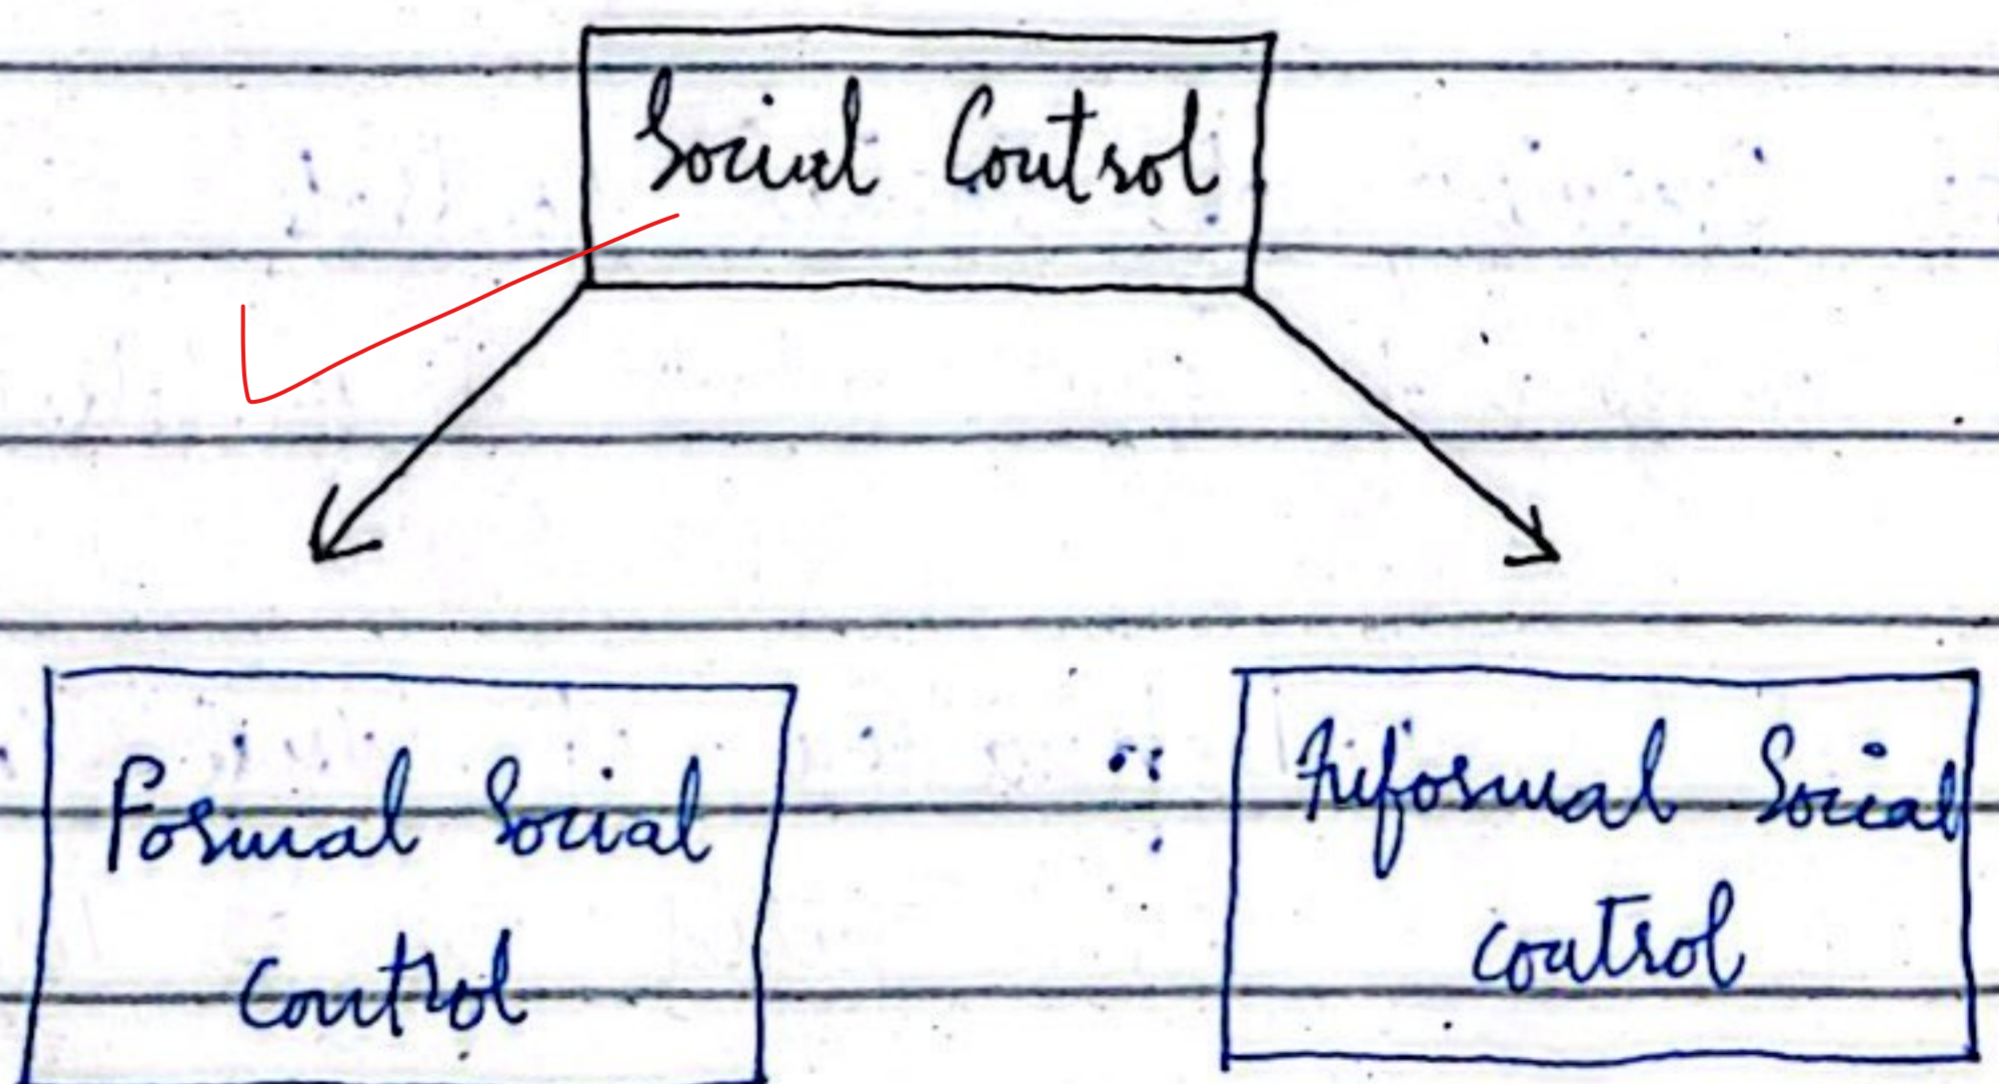 Social Control
Formal Social
Control
Informal Social
control